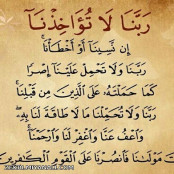 رَبَّنَا لَا تُؤَاخِذْنَآ
إِن نَّسِينَآ أَوْ أَخْطَأْنَا
رَبَّنَا وَلَا تَحْمِلْ عَلَيْنَآ إِصْرًا
كَمَا حَمَلْتَهُ عَلَى الَّذِينَ مِن قَبْلِنَا
رَبَّنَا وَلَا تُحَمِّلْنَا مَا لَا طَاقَةَ لَنَا بِهِ
وَاعْفُ عَنَّا وَاغْفِرْ لَنَا وَارْحَمْنَآ
أَنتَ مَوْلَىٰنَا فَانصُرْنَا عَلَى الْقَوْمِ الْكَٰفِرِينَ